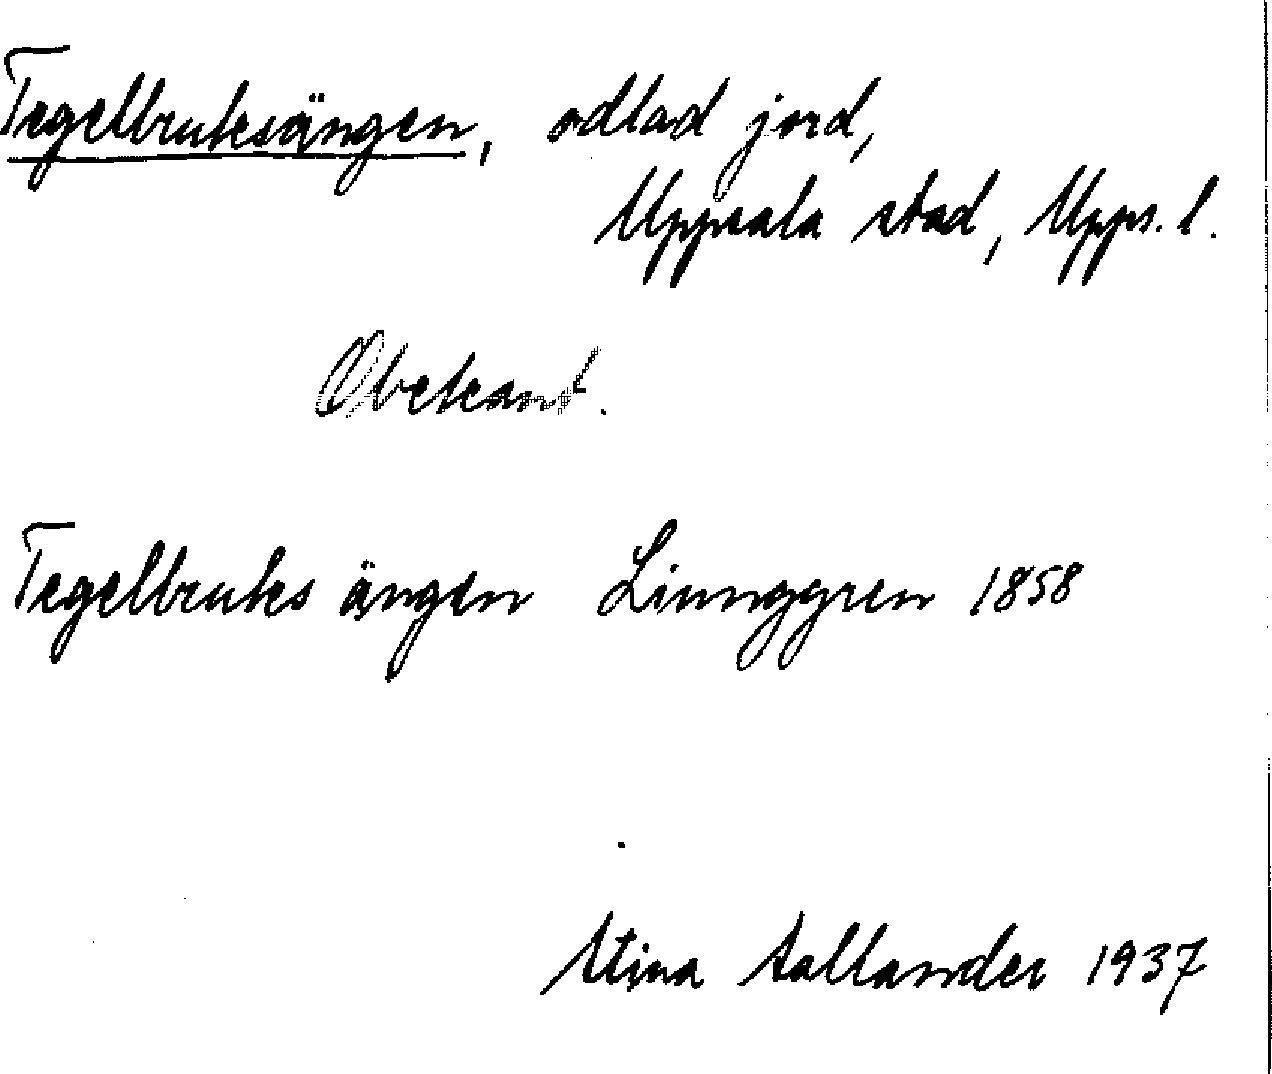 Tegelbruksängen, odlad jord,
Uppsala stad, Upps. l.
Obekant.
Tegelbruks ängen Ljunggren 1858
Stina Sallander 1937